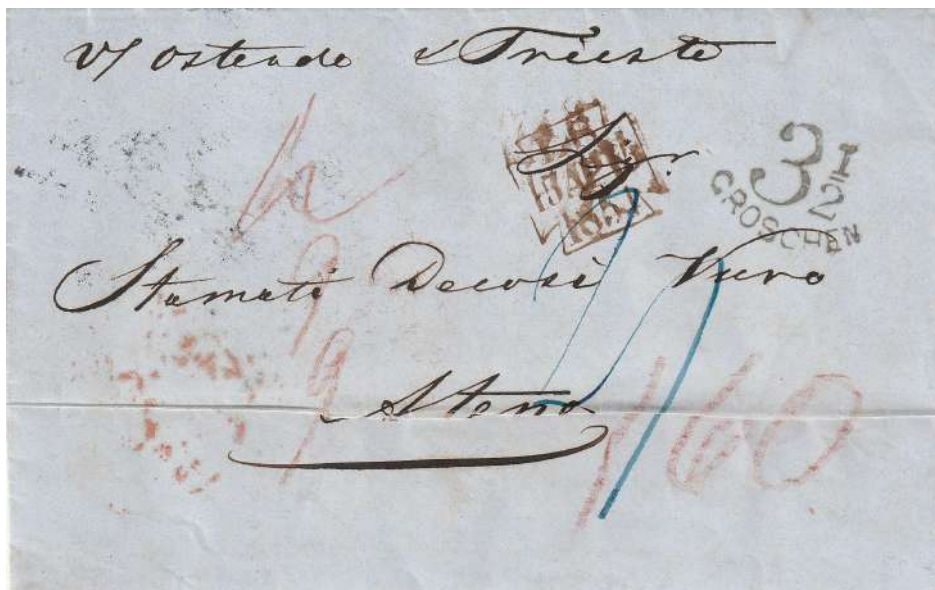 v/ Ostende & Trieste
Sgr.
3 1/2
GROSCHEN
Stamati Decosi Vuro
Atene
160